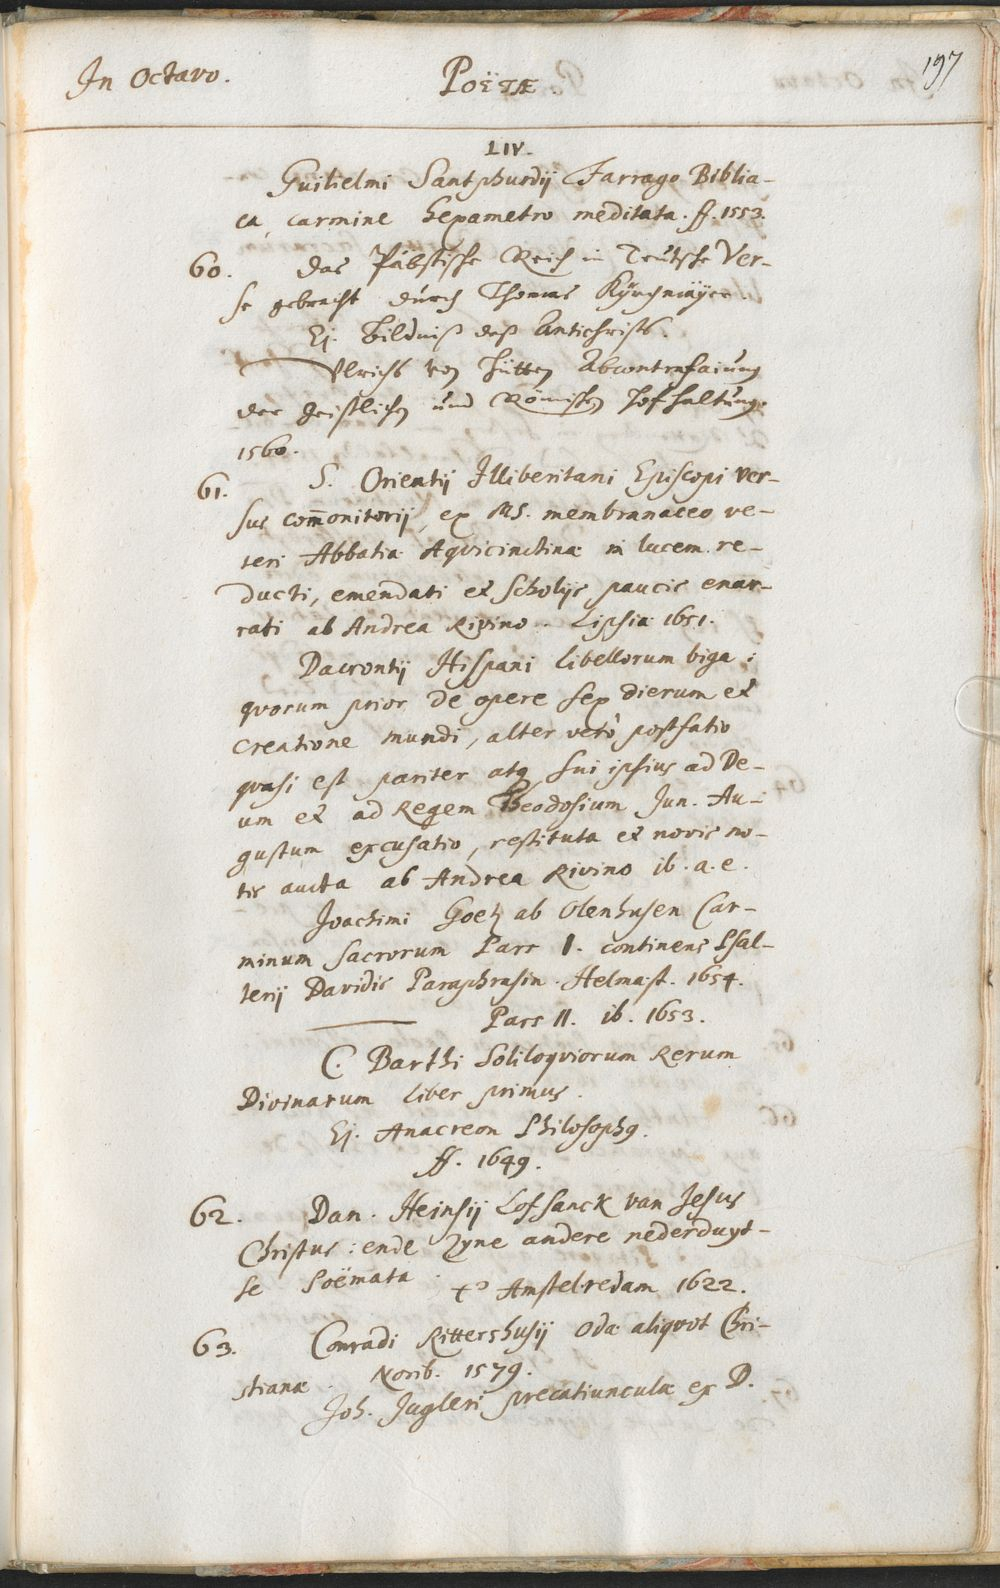 In Octavo. Poëtæ. 197
LIV.
Guilielmi Santphurdij Farrago Biblia-
ca, carmine hexametro meditata. ff. 1553.
60. Das Päbstische Reich in Teutsche Ver-
se gebracht durch Thomas Kyrchmäyer.
Ej. Bildniß deß Antichrists.
Ulrichs von Hütten Abcontrafaiung
der geistlichen und Römischen Hofhaltung.
1560.
61. S. Orientij Illiberitani Episcopi ver-
sus com̄onitorij, ex MS. membranaceo ve-
teri Abbatiæ Aqvicinctinæ in lucem re-
ducti, emendati et scholijs paucis enar-
rati ab Andrea Rivino. Lipsiæ 1651.
Dacrontij Hispani libellorum biga:
qvorum prior de opere sex dierum et
creatione mundi, alter verò postfatio
qvasi est pariter atq sui ipsius ad De-
um et ad Regem Theodosium Jun. Au-
gustum excusatio, restituta et novis no-
tis aucta ab Andrea Rivino ib. a. e.
Joachimi Goetz ab Olenhusen Car-
minum Sacrorum Pars I. continens Psal-
terij Davidis Paraphrasin. Helmæst. 1654.
Pars II. ib. 1653.
C. Barthi Soliloqviorum Rerum
Divinarum liber primus.
Ej. Anacreon Philosophg.
ff. 1649.
62. Dan. Heinsij Lofsanck van Jesus
Christus: ende zyne andere nederduyt-
se Poëmata.
Amstelredam 1622.
63. Conradi Rittershusij Odæ aliqvot Chri-
stianæ. Norib. 1579.
Joh. Jugleri precatiunculæ ex D.